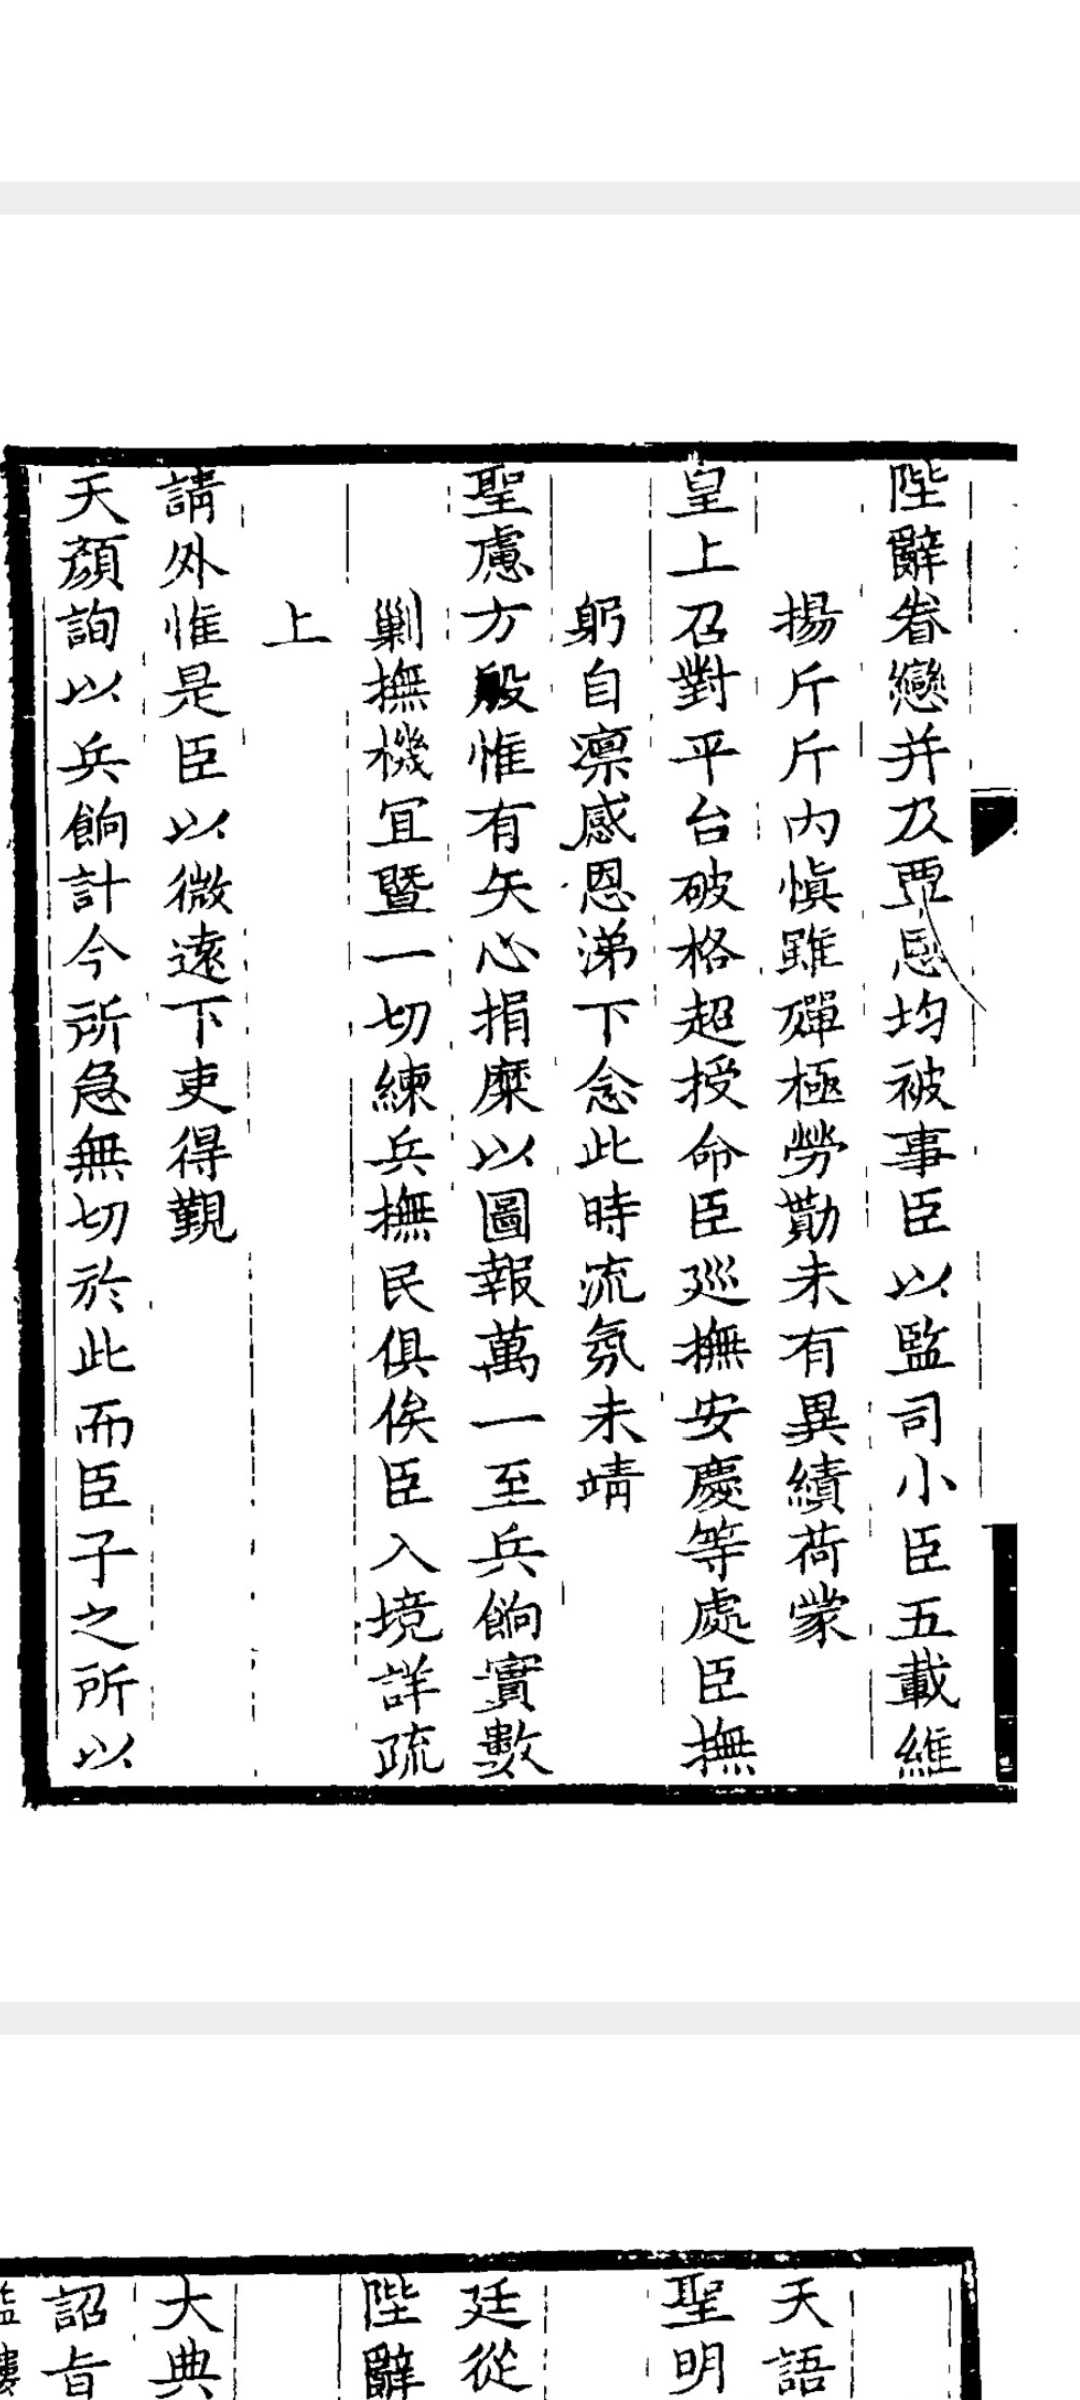 陛辭眷戀并及覃恩均被事臣以監司小臣五載維
揚斤斤內慎雖殫極勞勩未有異績荷蒙
皇上召對平台破格超授命臣廵撫安慶等處臣撫
躬自凛感恩涕下念此時流氛未靖
聖慮方殷惟有矢心捐糜以圖報萬一至兵餉實數
剿撫機宜暨一切練兵撫民俱俟臣入境詳疏
上
請外惟是臣以微遠下吏得覲
天顏詢以兵餉計今所急無切於此而臣子之所以
天語
聖明
廷從
陛辭
大典
詔旨